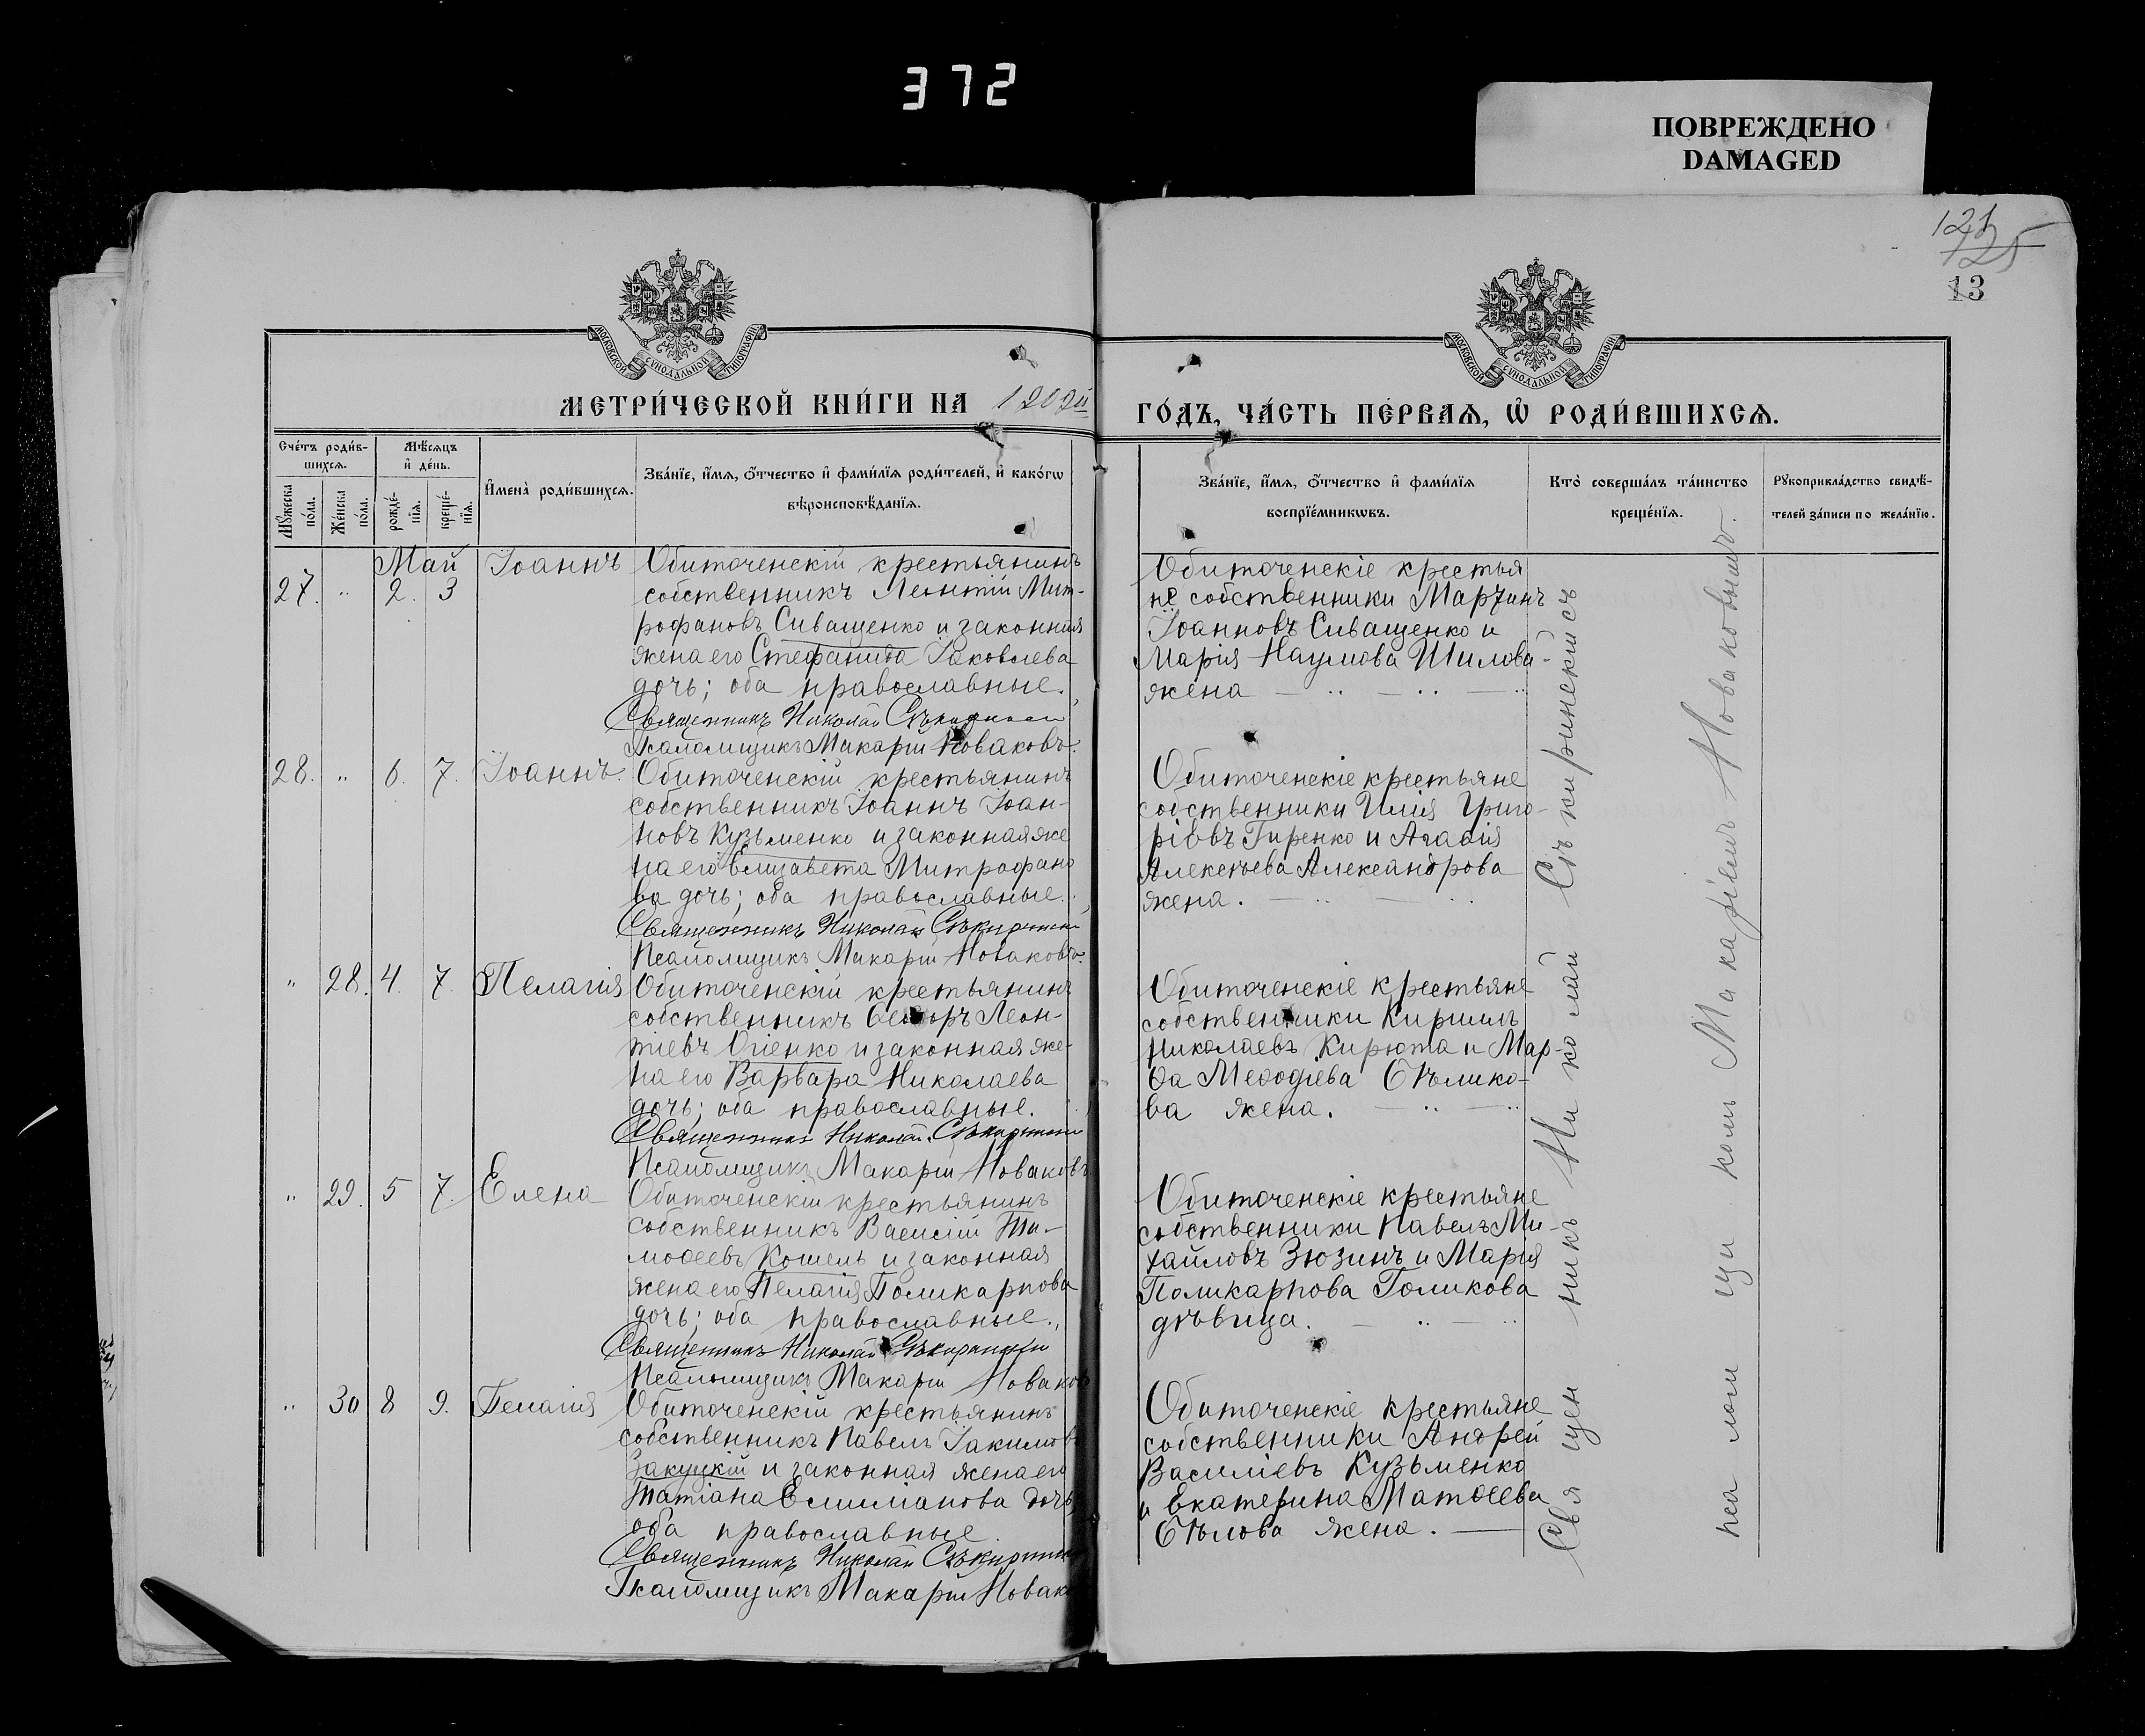 372
ПОВРЕЖДЕНО
DAMAGED
13
МОСКОВСКОЙ СѴНОДАЛЬНОЙ ТИПОГРАФІИ
МОСКОВСКОЙ СѴНОДАЛЬНОЙ ТИПОГРАФІИ
МЕТРИ́ЧЕСКОЙ КНИ́ГИ НА
ГО́ДЪ, ЧА́СТЬ ПЕ́РВАѦ, Ѡ҆ РОДИ́ВШИХСѦ.
Сче́тъ роди́в-
шихсѧ.
Мѣ́сѧцъ
и҆ де́нь.
И҆мена̀ роди́вшихсѧ.
Зва́нїе, и҆́мѧ, ѻ҆́тчество и҆ фами́лїѧ роди́телей, и҆ како́гѡ
вѣроисповѣ́данїѧ.
Мꙋ́жеска
по́ла.
Же́нска
по́ла.
рожде́-
нїѧ.
креще́-
нїѧ.
Зва́нїе, и҆́мѧ, ѻ҆́тчество и҆ фами́лїѧ
воспрїе́мникѡвъ.
Кто̀ соверша́лъ та́инство
креще́нїѧ.
Рꙋкоприкла́дство свидѣ́-
телей за́писи по жела́нїю.
Май
27. " 2. 3 Іоаннъ
Обиточенскій крестьянинъ
собственникъ Леонтій Мит-
рофановъ Сиващенко и законная
жена его Стефанида Іаковлева
дочь; оба православные.
Священникъ Николай Сѣкиринскій
Псаломщикъ Макарій Новаковъ.
Обиточенскіе крестья
не собственники Мартинъ
Іоанновъ Сиващенко и
Марія Наумова Шилова
жена
28. " 6. 7. Іоаннъ.
Обиточенскій крестьянинъ
собственникъ Іоаннъ Іоан-
новъ Кузьменко и законная же
на его Елизавета Митрофано
ва дочь; оба православные.
Священникъ Николай Сѣкиринскій
Псаломщикъ Макарій Новаковъ.
Обиточенскіе крестьяне
собственники Илія Григо-
ріевъ Гиренко и Агафія
Алексѣева Александрова
жена.
" 28. 4. 7. Пелагія
Обиточенскій крестьянинъ
собственникъ Ѳеодоръ Леон-
тіевъ Огіенко и законная же-
на его Варвара Николаева
дочь; оба православные.
Священникъ Николай Сѣкиринскій
Псаломщикъ Макарій Новаковъ
Обиточенскіе крестьяне
собственники Кириллъ
Николаевъ Кирюта и Мар-
ѳа Меѳодіева Бѣлико-
ва жена.
" 29. 5 7. Елена
Обиточенскій крестьянинъ
собственникъ Василій Ти-
моѳеевъ Кошель и законная
жена его Пелагія Поликарпова
дочь; оба православные.
Священникъ Николай Сѣкиринскій
Псаломщикъ Макарій Новаков
Обиточенскіе крестьяне
собственники Павелъ Ми-
хайловъ Зюзинъ и Марія
Поликарпова Голикова
дѣвица.
" 30 8 9. Пелагія
Обиточенскій крестьянинъ
собственникъ Павелъ Іакимов
Закуцкій и законная жена его
Татіана Емиліанова дочь
оба православные.
Священникъ Николай Сѣкирин
Псаломщикъ Макарій Новак
Обиточенскіе крестьяне
собственники Андрей
Василіевъ Кузьменко
и Екатерина Матѳеева
Бѣлова жена.
Священникъ Николай Сѣкиринскій съ
псаломщикомъ Макаріемъ Новаковымъ.